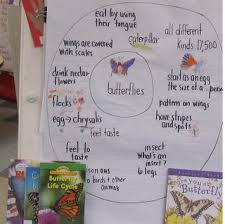 eat by using
their tongue
caterpillar
all different
kinds 17,500
wings are covered
with scales
drink nectar
flowers
start as an egg
the size of a
butterflies
flocks
pattern on wings
egg → chrysalis
have stripes
and spots
feet taste
feel to
taste
insect
what's an
insect?
6 legs
birds + other
animals
Butterfly
Life Cycle
you
Butterfly